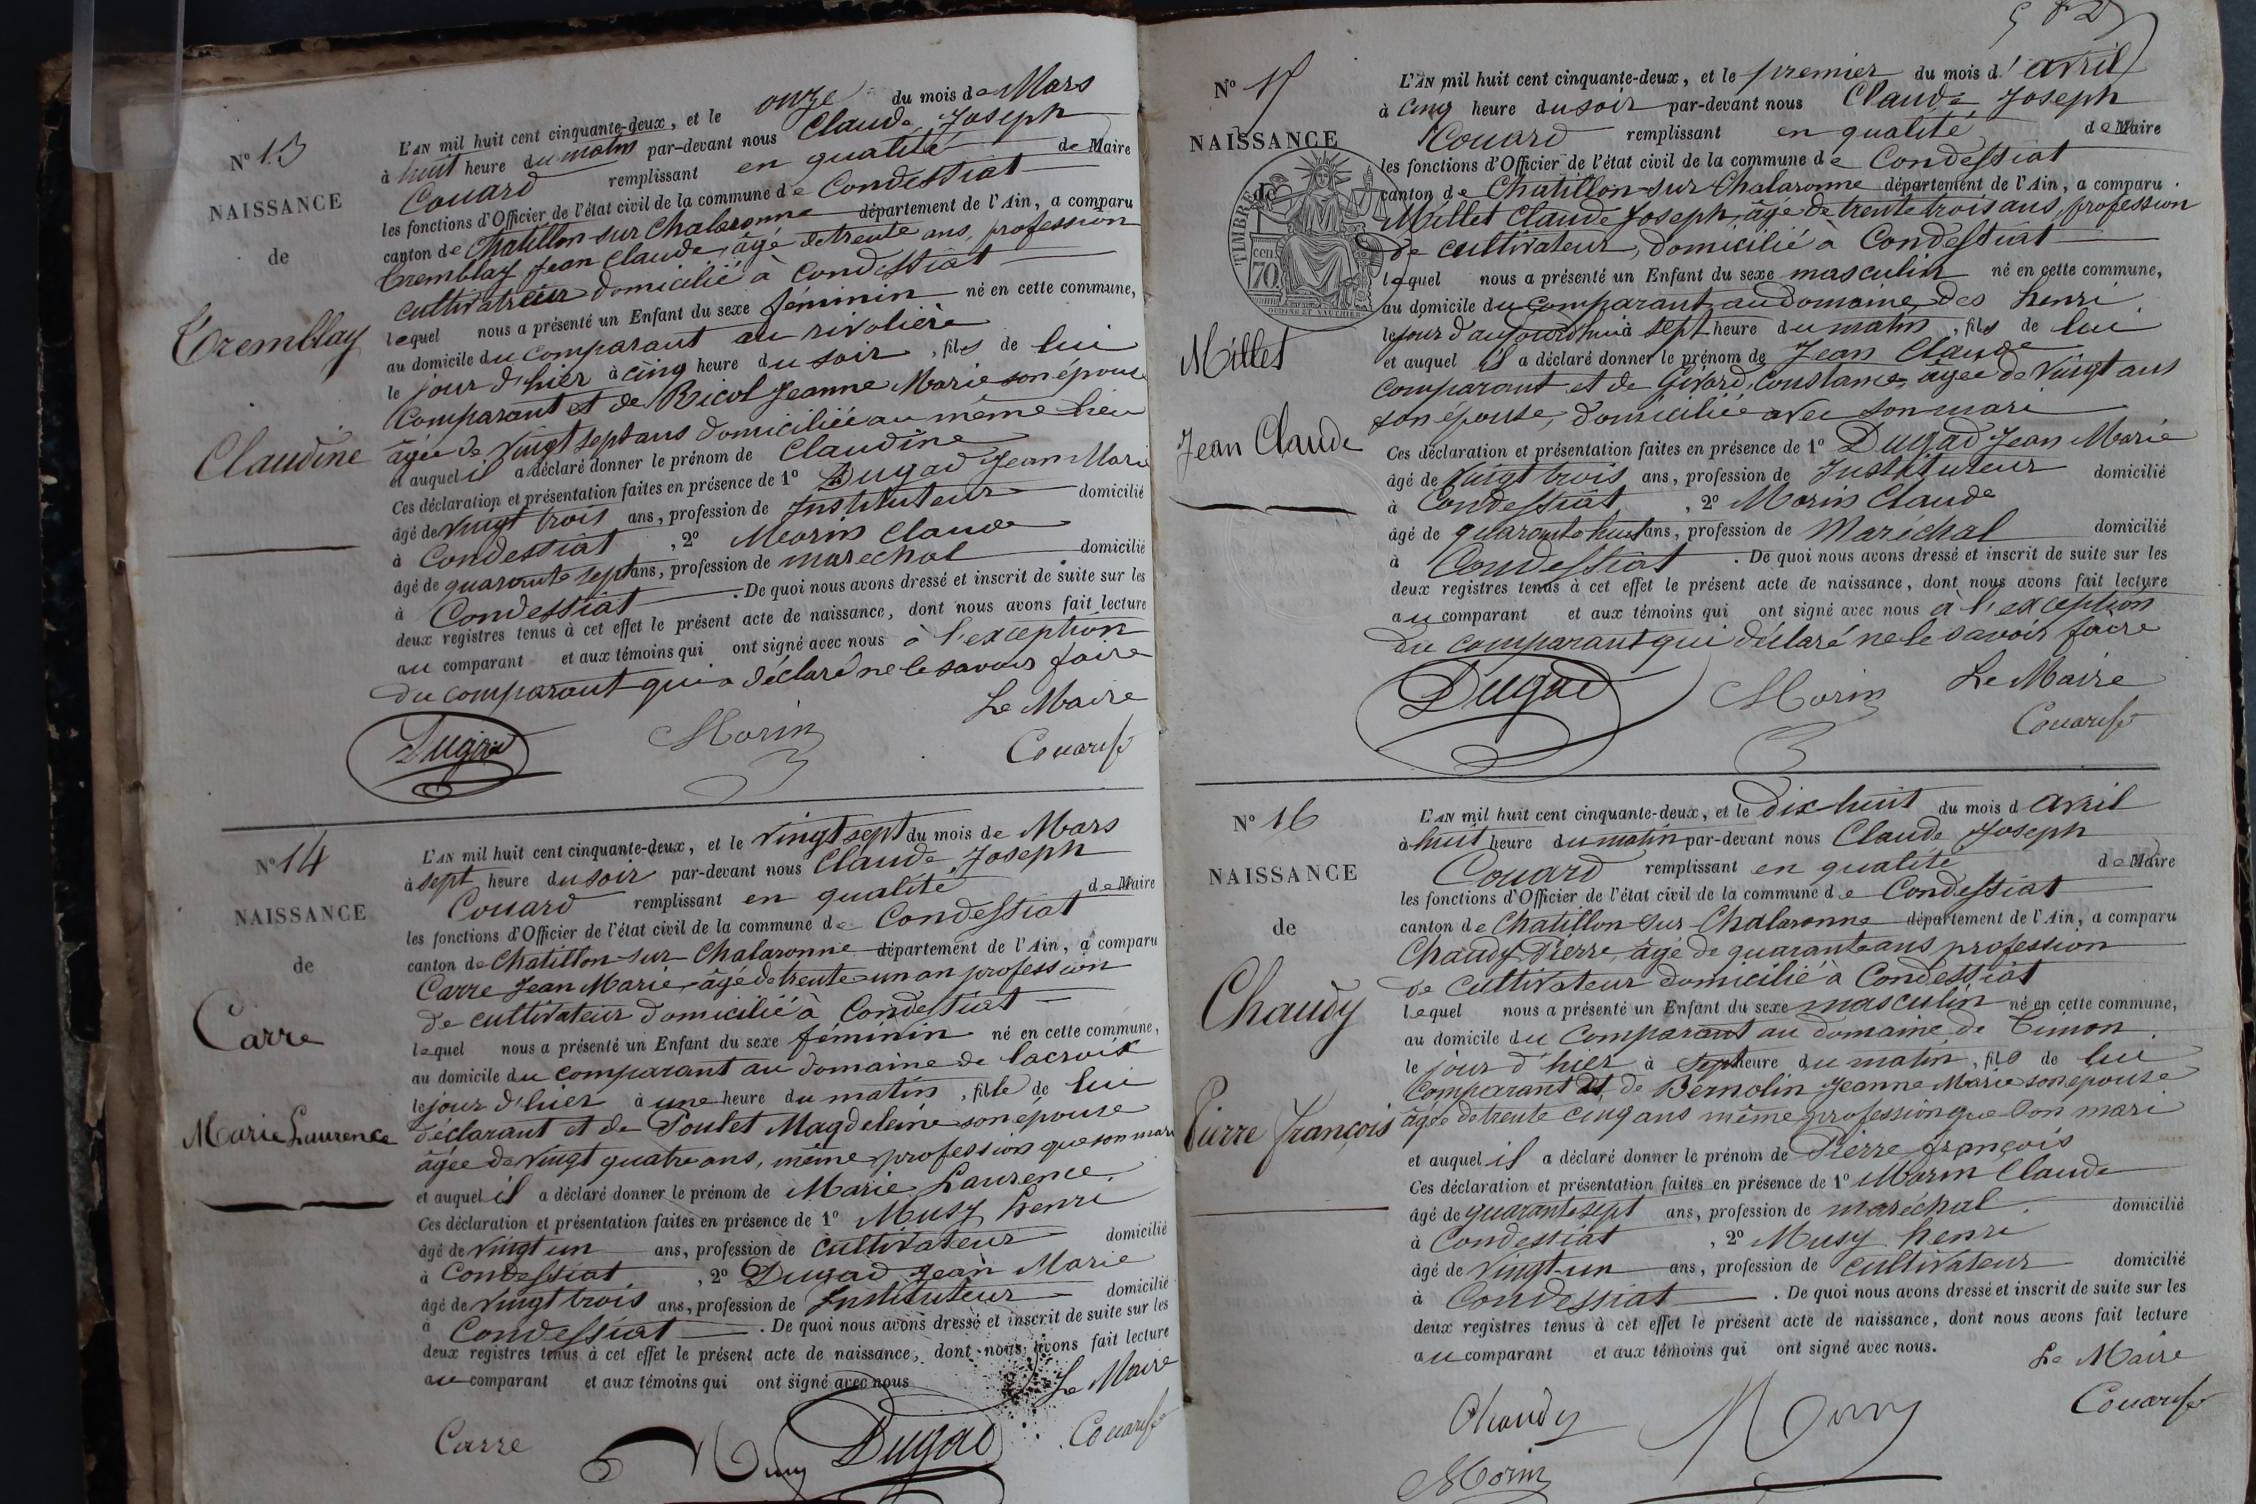 N° 13
NAISSANCE
de
Tremblay
Claudine
L'AN mil huit cent cinquante-deux, et le onze du mois de Mars
à huit heure du matin par-devant nous Claude Joseph
Couard remplissant en qualité de Maire
les fonctions d'Officier de l'état civil de la commune de Condessiat
canton de Chatillon-sur-Chalaronne département de l'Ain, a comparu
Tremblay Jean Claude, âgé de trente ans, profession
cultivateur domicilié à Condessiat
lequel nous a présenté un Enfant du sexe féminin né en cette commune,
au domicile du comparant au rivolière
le jour d'hier à cinq heure du soir, fils de lui
comparant et de Ricol Jeanne Marie son épouse
âgée de vingt sept ans domiciliée au même lieu
et auquel il a déclaré donner le prénom de Claudine
Ces déclaration et présentation faites en présence de 1° Dugad Jean Marie
âgé de vingt trois ans, profession de Instituteur domicilié
à Condessiat, 2° Morin Claude
âgé de quarante sept ans, profession de maréchal domicilié
à Condessiat. De quoi nous avons dressé et inscrit de suite sur les
deux registres tenus à cet effet le présent acte de naissance, dont nous avons fait lecture
au comparant et aux témoins qui ont signé avec nous à l'exception
du comparant qui a déclaré ne le savoir faire
Le Maire
Dugad Morin Couard
N° 14
NAISSANCE
de
Carre
Marie Laurence
L'AN mil huit cent cinquante-deux, et le vingt sept du mois de Mars
à sept heure du soir par-devant nous Claude Joseph
Couard remplissant en qualité de Maire
les fonctions d'Officier de l'état civil de la commune de Condessiat
canton de Chatillon-sur-Chalaronne département de l'Ain, a comparu
Carre Jean Marie âgé de trente un an profession
de cultivateur domicilié à Condessiat
lequel nous a présenté un Enfant du sexe féminin né en cette commune,
au domicile du comparant au domaine de lacroix
le jour d'hier à une heure du matin, fille de lui
déclarant et de Poulet Magdeleine son épouse
âgée de vingt quatre ans, même profession que son mari
et auquel il a déclaré donner le prénom de Marie Laurence
Ces déclaration et présentation faites en présence de 1° Musy henri
âgé de vingt un ans, profession de cultivateur domicilié
à Condessiat, 2° Dugad Jean Marie
âgé de vingt trois ans, profession de Instituteur domicilié
à Condessiat. De quoi nous avons dressé et inscrit de suite sur les
deux registres tenus à cet effet le présent acte de naissance, dont nous avons fait lecture
au comparant et aux témoins qui ont signé avec nous
Le Maire
Carre Musy Dugad Couard
N° 15
NAISSANCE
de
TIMBRE
70
Millet
Jean Claude
L'AN mil huit cent cinquante-deux, et le premier du mois d'avril
à cinq heure du soir par-devant nous Claude Joseph
Couard remplissant en qualité de Maire
les fonctions d'Officier de l'état civil de la commune de Condessiat
canton de Chatillon-sur-Chalaronne département de l'Ain, a comparu
Millet Claude Joseph, âgé de trente trois ans, profession
de cultivateur, domicilié à Condessiat
lequel nous a présenté un Enfant du sexe masculin né en cette commune,
au domicile du comparant au domaine des henri
le jour d'aujourd'hui à sept heure du matin, fils de lui
et auquel il a déclaré donner le prénom de Jean Claude
comparant et de Girard, Constance, âgée de vingt ans
son épouse, domiciliée avec son mari
Ces déclaration et présentation faites en présence de 1° Dugad Jean Marie
âgé de vingt trois ans, profession de Instituteur domicilié
à Condessiat, 2° Morin Claude
âgé de quarante huit ans, profession de Maréchal domicilié
à Condessiat. De quoi nous avons dressé et inscrit de suite sur les
deux registres tenus à cet effet le présent acte de naissance, dont nous avons fait lecture
au comparant et aux témoins qui ont signé avec nous à l'exception
du comparant qui déclaré ne le savoir faire
Le Maire
Dugad Morin Couard
N° 16
NAISSANCE
de
Chaudy
Pierre François
L'AN mil huit cent cinquante-deux, et le dix huit du mois d avril
à huit heure du matin par-devant nous Claude Joseph
Couard remplissant en qualité de Maire
les fonctions d'Officier de l'état civil de la commune de Condessiat
canton de Chatillon-sur-Chalaronne département de l'Ain, a comparu
Chaudy Pierre, âgé de quarante ans profession
de cultivateur domicilié à Condessiat
lequel nous a présenté un Enfant du sexe masculin né en cette commune,
au domicile du comparant au domaine de Timon
le jour d'hier à sept heure du matin, fils de lui
comparant et de Bernolin Jeanne Marie son épouse
âgée de trente cinq ans même profession que son mari
et auquel il a déclaré donner le prénom de Pierre françois
Ces déclaration et présentation faites en présence de 1° Morin Claude
âgé de quarante sept ans, profession de maréchal domicilié
à Condessiat, 2° Musy henri
âgé de vingt-un ans, profession de cultivateur domicilié
à Condessiat. De quoi nous avons dressé et inscrit de suite sur les
deux registres tenus à cet effet le présent acte de naissance, dont nous avons fait lecture
au comparant et aux témoins qui ont signé avec nous.
Le Maire
Chaudy Musy Couard
Morin